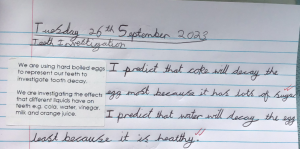 Tuesday 26th September 2023
Teeth Investigation
We are using hard boiled eggs
to represent out teeth to
investigate tooth decay.
We are investigating the effects
that different liquids have on
teeth e.g. cola, water, vinegar,
milk and orange juice.
I predict that coke will decay the
egg most because it has lots of sugar
I predict that water will decay the egg
least because it is healthy.